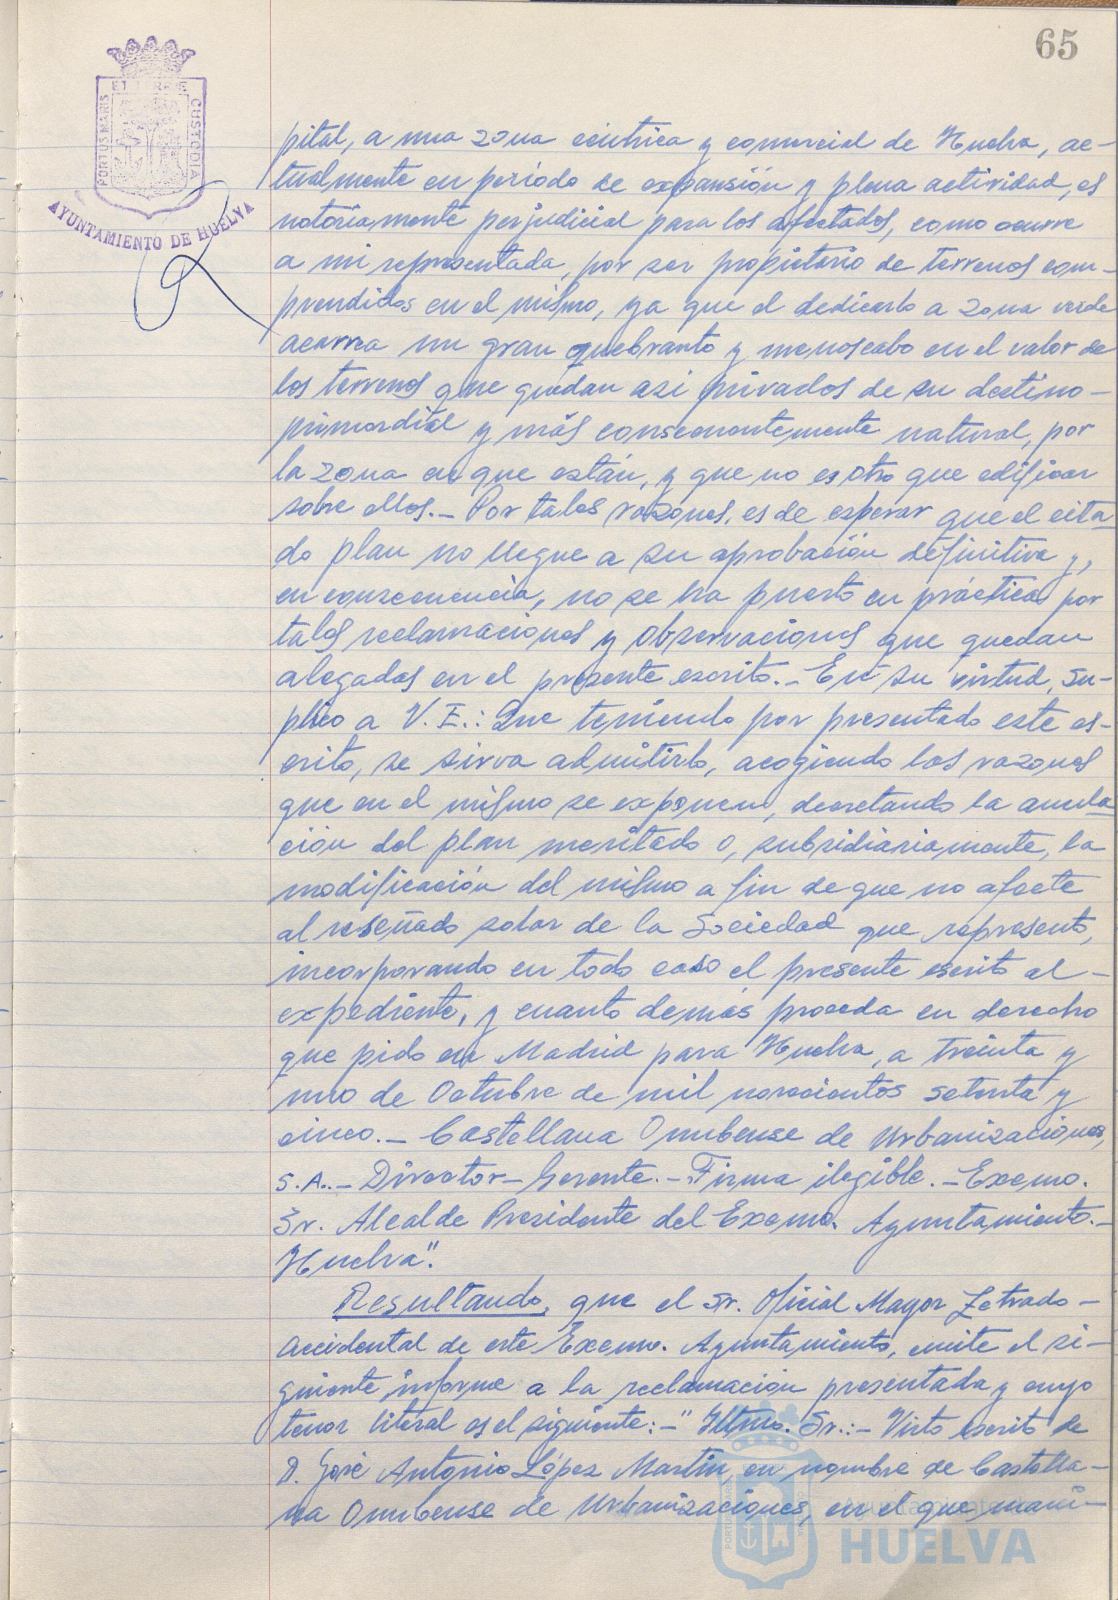 65
ET TERRAE
PORTUS MARIS
CUSTODIA
AYUNTAMIENTO DE HUELVA
pital, a una zona céntrica y comercial de Huelva, ac-
tualmente en período de expansión y plena actividad, es
notoriamente perjudicial para los afectados, como ocurre
a mi representada, por ser propietario de terrenos com-
prendidos en el mismo, ya que el dedicarlo a zona verde
acarrea un gran quebranto y menoscabo en el valor de
los terrenos que quedan asi privados de su destino-
primordial y más consecuentemente natural, por
la zona en que están, y que no es otro que edificar
sobre ellos.- Por tales razones, es de esperar que el cita
do plan no llegue a su aprobación definitiva y,
en consecuencia, no se ha puesto en práctica por
tales reclamaciones y observaciones que quedan
alegadas en el presente escrito.- En su virtud, Su-
plico a V. E.: Que teniendo por presentado este es-
crito, se sirva admitirlo, acogiendo las razones
que en el mismo se exponen, decretando la anula
ción del plan meritado o, subsidiariamente, la
modificación del mismo a fin de que no afecte
al reseñado solar de la Sociedad que represento,
incorporando en todo caso el presente escrito al-
expediente, y cuanto demás proceda en derecho
que pido en Madrid para Huelva, a treinta y
uno de Octubre de mil novecientos setenta y
cinco.- Castellana Onubense de Urbanizaciones,
S.A.- Director-Gerente.- Firma ilegible.- Excmo.
Sr. Alcalde Presidente del Excmo. Ayuntamiento.-
Huelva".
Resultando, que el Sr. Oficial Mayor Letrado-
Accidental de este Excmo. Ayuntamiento, emite el si-
guiente informe a la reclamación presentada y cuyo
tenor literal es el siguiente:-" Iltmo. Sr.:- Visto escrito de
D. José Antonio López Martín en nombre de Castella-
na Onubense de Urbanizaciones, en el que mani-
Ayuntamiento de
HUELVA